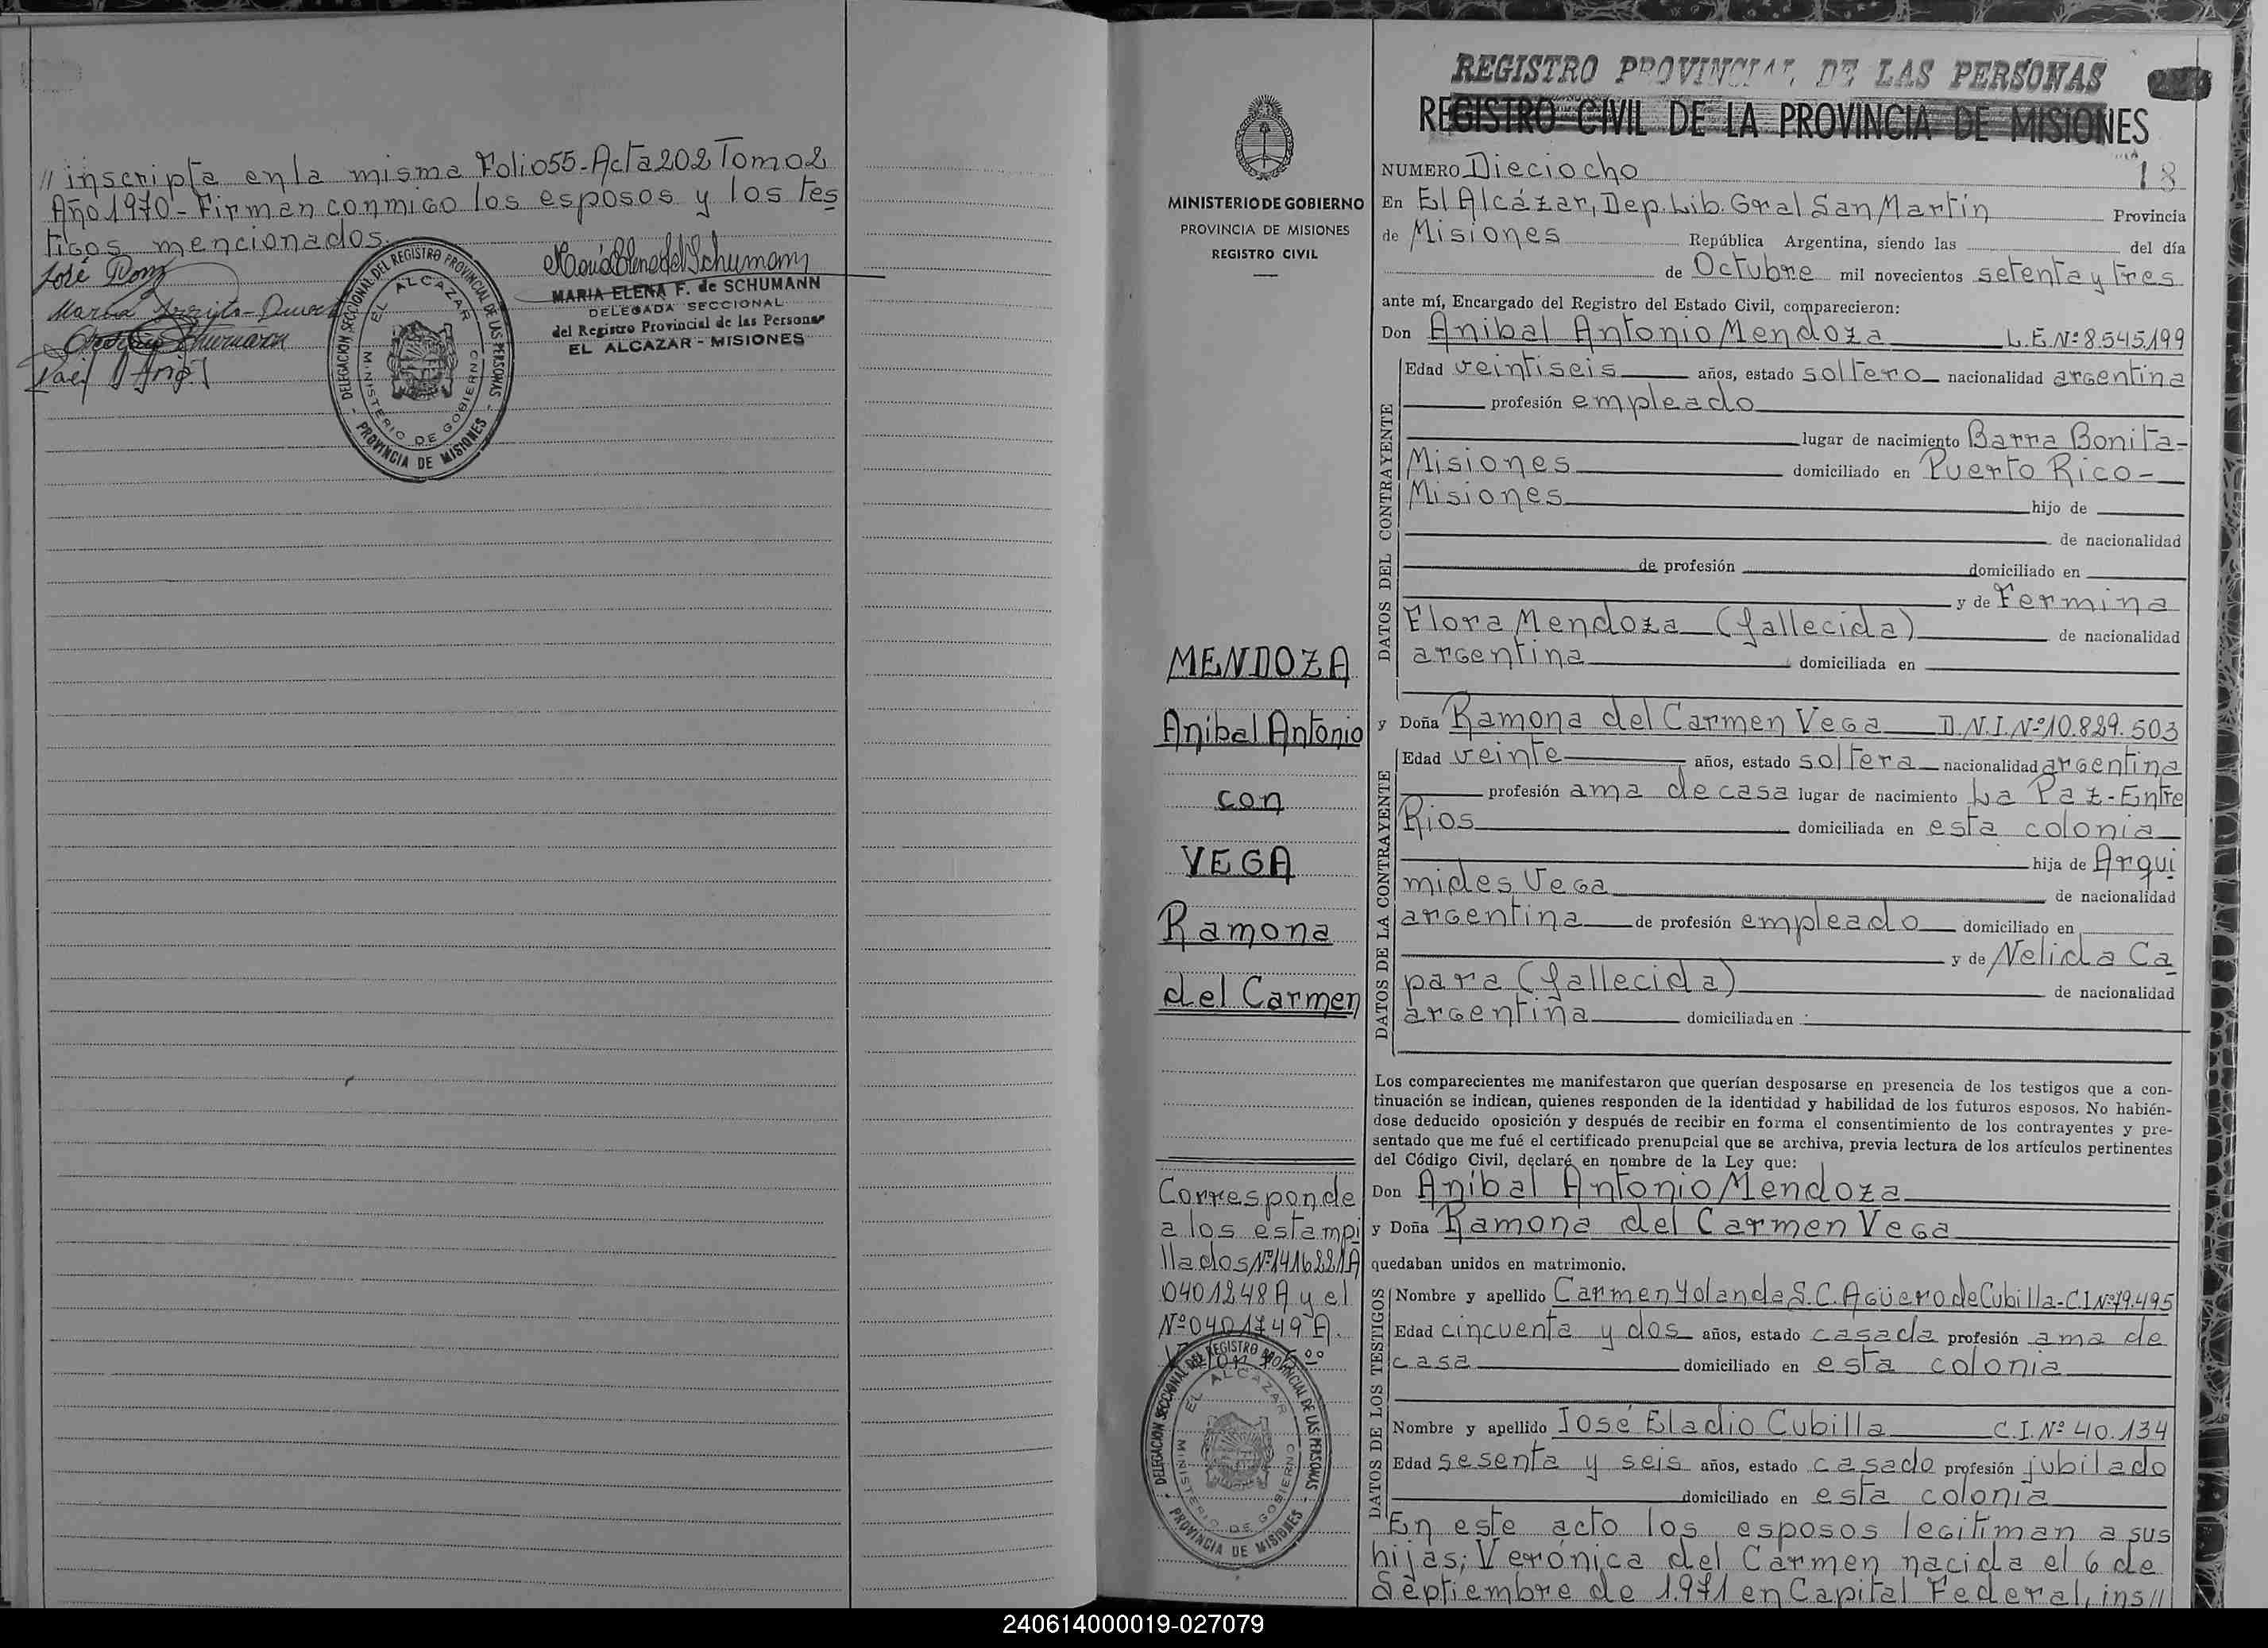 // inscripta en la misma Folio 55-Acta 202 Tomo 2
Año 1970-Firman conmigo los esposos y los tes
tigos mencionados.
MARIA ELENA F. de SCHUMANN
DELEGADA SECCIONAL
del Registro Provincial de las Personas
EL ALCAZAR - MISIONES
DELEGACION SECCIONAL DEL REGISTRO PROVINCIAL DE LAS PERSONAS
EL ALCAZAR
MINISTERIO DE GOBIERNO
- PROVINCIA DE MISIONES -
MINISTERIO DE GOBIERNO
PROVINCIA DE MISIONES
REGISTRO CIVIL
MENDOZA
Anibal Antonio
con
VEGA
Ramona
del Carmen
Corresponde
a los estampi
llados Nº1416221A
0401248A y el
Nº0401749A.
DELEGACION SECCIONAL DEL REGISTRO PROVINCIAL DE LAS PERSONAS
EL ALCAZAR
MINISTERIO DE GOBIERNO
- PROVINCIA DE MISIONES -
REGISTRO PROVINCIAL DE LAS PERSONAS
REGISTRO CIVIL DE LA PROVINCIA DE MISIONES
NUMERO Dieciocho 18
En El Alcázar, Dep. Lib. Gral San Martín Provincia
de Misiones República Argentina, siendo las del día
de Octubre mil novecientos setenta y tres
ante mí, Encargado del Registro del Estado Civil, comparecieron:
Don Anibal Antonio Mendoza L.E.Nº 8.545.199
DATOS DEL CONTRAYENTE
Edad veintiseis años, estado soltero nacionalidad argentina
profesión empleado
lugar de nacimiento Barra Bonita-
Misiones domiciliado en Puerto Rico-
Misiones hijo de
de nacionalidad
de profesión domiciliado en
y de Fermina
Flora Mendoza (fallecida) de nacionalidad
argentina domiciliada en
y Doña Ramona del Carmen Vega D.N.I.Nº 10.829.503
DATOS DE LA CONTRAYENTE
Edad veinte años, estado soltera nacionalidad argentina
profesión ama de casa lugar de nacimiento La Paz-Entre
Rios domiciliada en esta colonia
hija de Arqui
mides Vega de nacionalidad
argentina de profesión empleado domiciliado en
y de Nelida Ca
para (fallecida) de nacionalidad
argentina domiciliada en
Los comparecientes me manifestaron que querían desposarse en presencia de los testigos que a con-
tinuación se indican, quienes responden de la identidad y habilidad de los futuros esposos. No habién-
dose deducido oposición y después de recibir en forma el consentimiento de los contrayentes y pre-
sentado que me fué el certificado prenupcial que se archiva, previa lectura de los artículos pertinentes
del Código Civil, declaré en nombre de la Ley que:
Don Anibal Antonio Mendoza
y Doña Ramona del Carmen Vega
quedaban unidos en matrimonio.
DATOS DE LOS TESTIGOS
Nombre y apellido Carmen Yolanda S.C. Agüero de Cubilla-C.I.Nº 79.495
Edad cincuenta y dos años, estado casada profesión ama de
casa domiciliado en esta colonia
Nombre y apellido José Eladio Cubilla C.I.Nº 40.134
Edad sesenta y seis años, estado casado profesión jubilado
domiciliado en esta colonia
En este acto los esposos legitiman a sus
hijas; Verónica del Carmen nacida el 6 de
Septiembre de 1.971 en Capital Federal, ins//
240614000019-027079